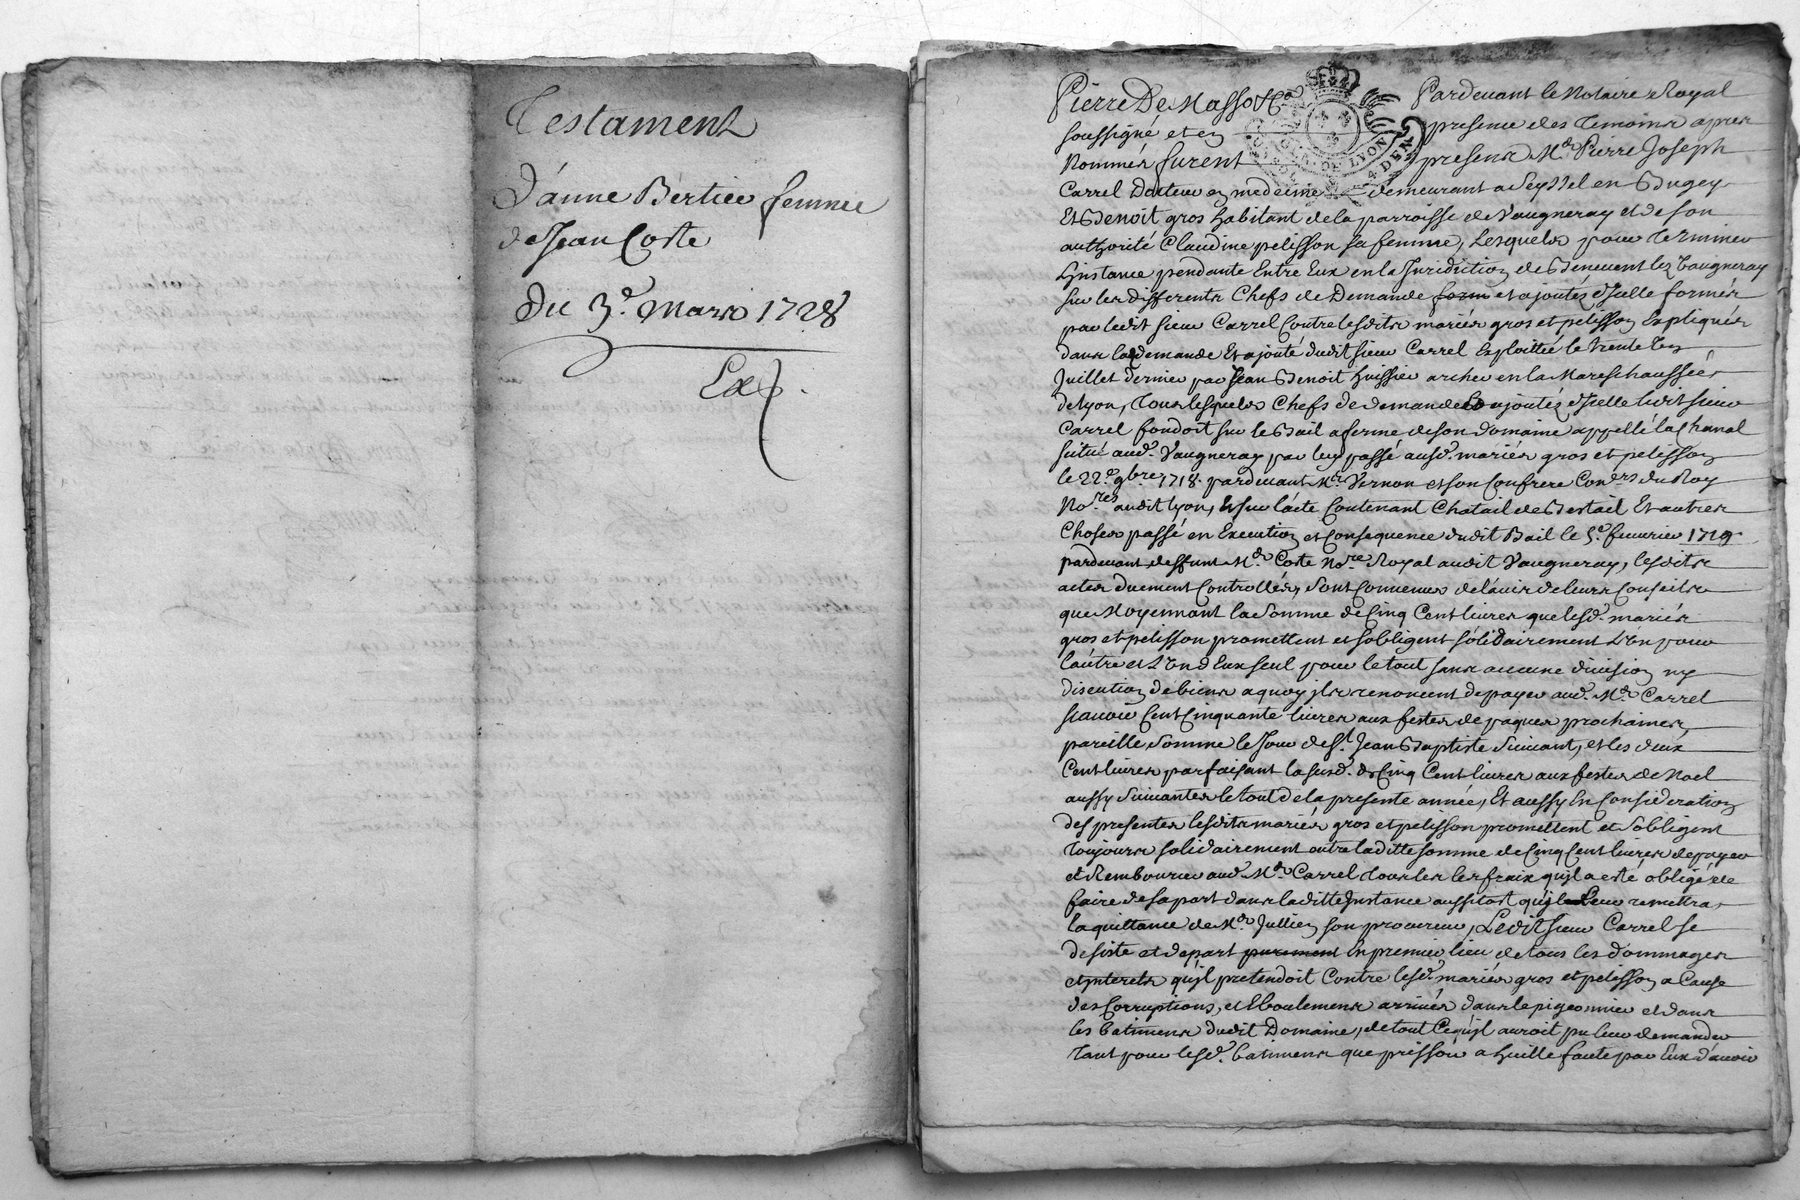 Testament
D'anne Bertier femme
de Jean Coste
Du 3.e Mars 1728
Ex
Pierre De Masso Pardevant le Notaire Royal
soussigné et en presence des Temoins apres
Nommés furent presens Me. Pierre Joseph
Carrel Docteur en medecine demeurant a Seyssel en Bugey
Et Benoit gros habitant de la parroisse de Vaugneray et de son
authorité Claudine pelisson sa femme, Lesquels pour Terminer
L'jnstance pendante Entre Eux en la Juridiction de Benevent lez Vaugneray
sur les differents Chefs de Demande et ajoutés d'Jcelle formés
par ledit sieur Carrel Contre lesdits mariés gros et pelisson Expliqués
dans la demande Et ajouté dudit sieur Carrel Exploittée le trente
Juillet dernier par Jean Benoit huissier archer en la Mareschaussée
de Lyon, Tous lesquels Chefs de demande Et ajoutés d'Jcelle ledit sieur
Carrel fondoit sur le Bail a ferme de son domaine appellé la Chanal
situé aud. Vaugneray par luy passé ausd. mariés gros et pelisson
le 22.e 9bre 1718. pardevant Me Vernon et son Confrere Con.ers du Roy
No.res audit Lyon, Et sur l'acte Contenant Chatail de Bestail Et autres
Choses passé en Execution et Consequence dudit Bail le 5.e fevrier 1719
pardevant deffunt Me. Coste No.re Royal audit Vaugneray, lesdits
actes duement Controllés, sont Convenus de l'avis de leurs Conseils
que Moyennant la Somme de Cinq Cent livres que lesd. mariés
gros et pelisson promettent et s'obligent solidairement L'Un pour
l'autre et L'Un d'Eux seul pour le tout sans aucune division ny
discution de biens a quoy jls renoncent de payer aud. Me. Carrel
scavoir Cent Cinquante livres aux festes de paques prochaines,
pareille Somme le Jour de St. Jean Baptiste Suivant, et les deux
Cent livres parfaisant la susd. de Cinq Cent livres aux festes de Noel
aussy Suivantes le tout de la presente année, Et aussy En Consideration
des presentes lesdits mariés gros et pelisson promettent et s'obligent
Toujours solidairement outre laditte somme de Cinq Cent livres de payer
et Rembourser aud. Me. Carrel Tous les frais qu'jl a esté obligé de
faire de sa part dans laditte Jnstance aussitost qu'jl Leur remettra
la quittance de Me. Jullien son procureur, Ledit sieur Carrel se
desiste et depart purement En premier lieu de tous les dommages
et jnterets qu'jl pretendoit Contre lesd. mariés gros et pelisson a Cause
des Corruptions, et Eboulemens arrivés dans le pigeonnier et dans
les batimens dudit Domaine, de tout Ce qu'jl auroit pu leur demander
Tant pour lesd. batimens que pressoir a huille faute par Eux d'avoir